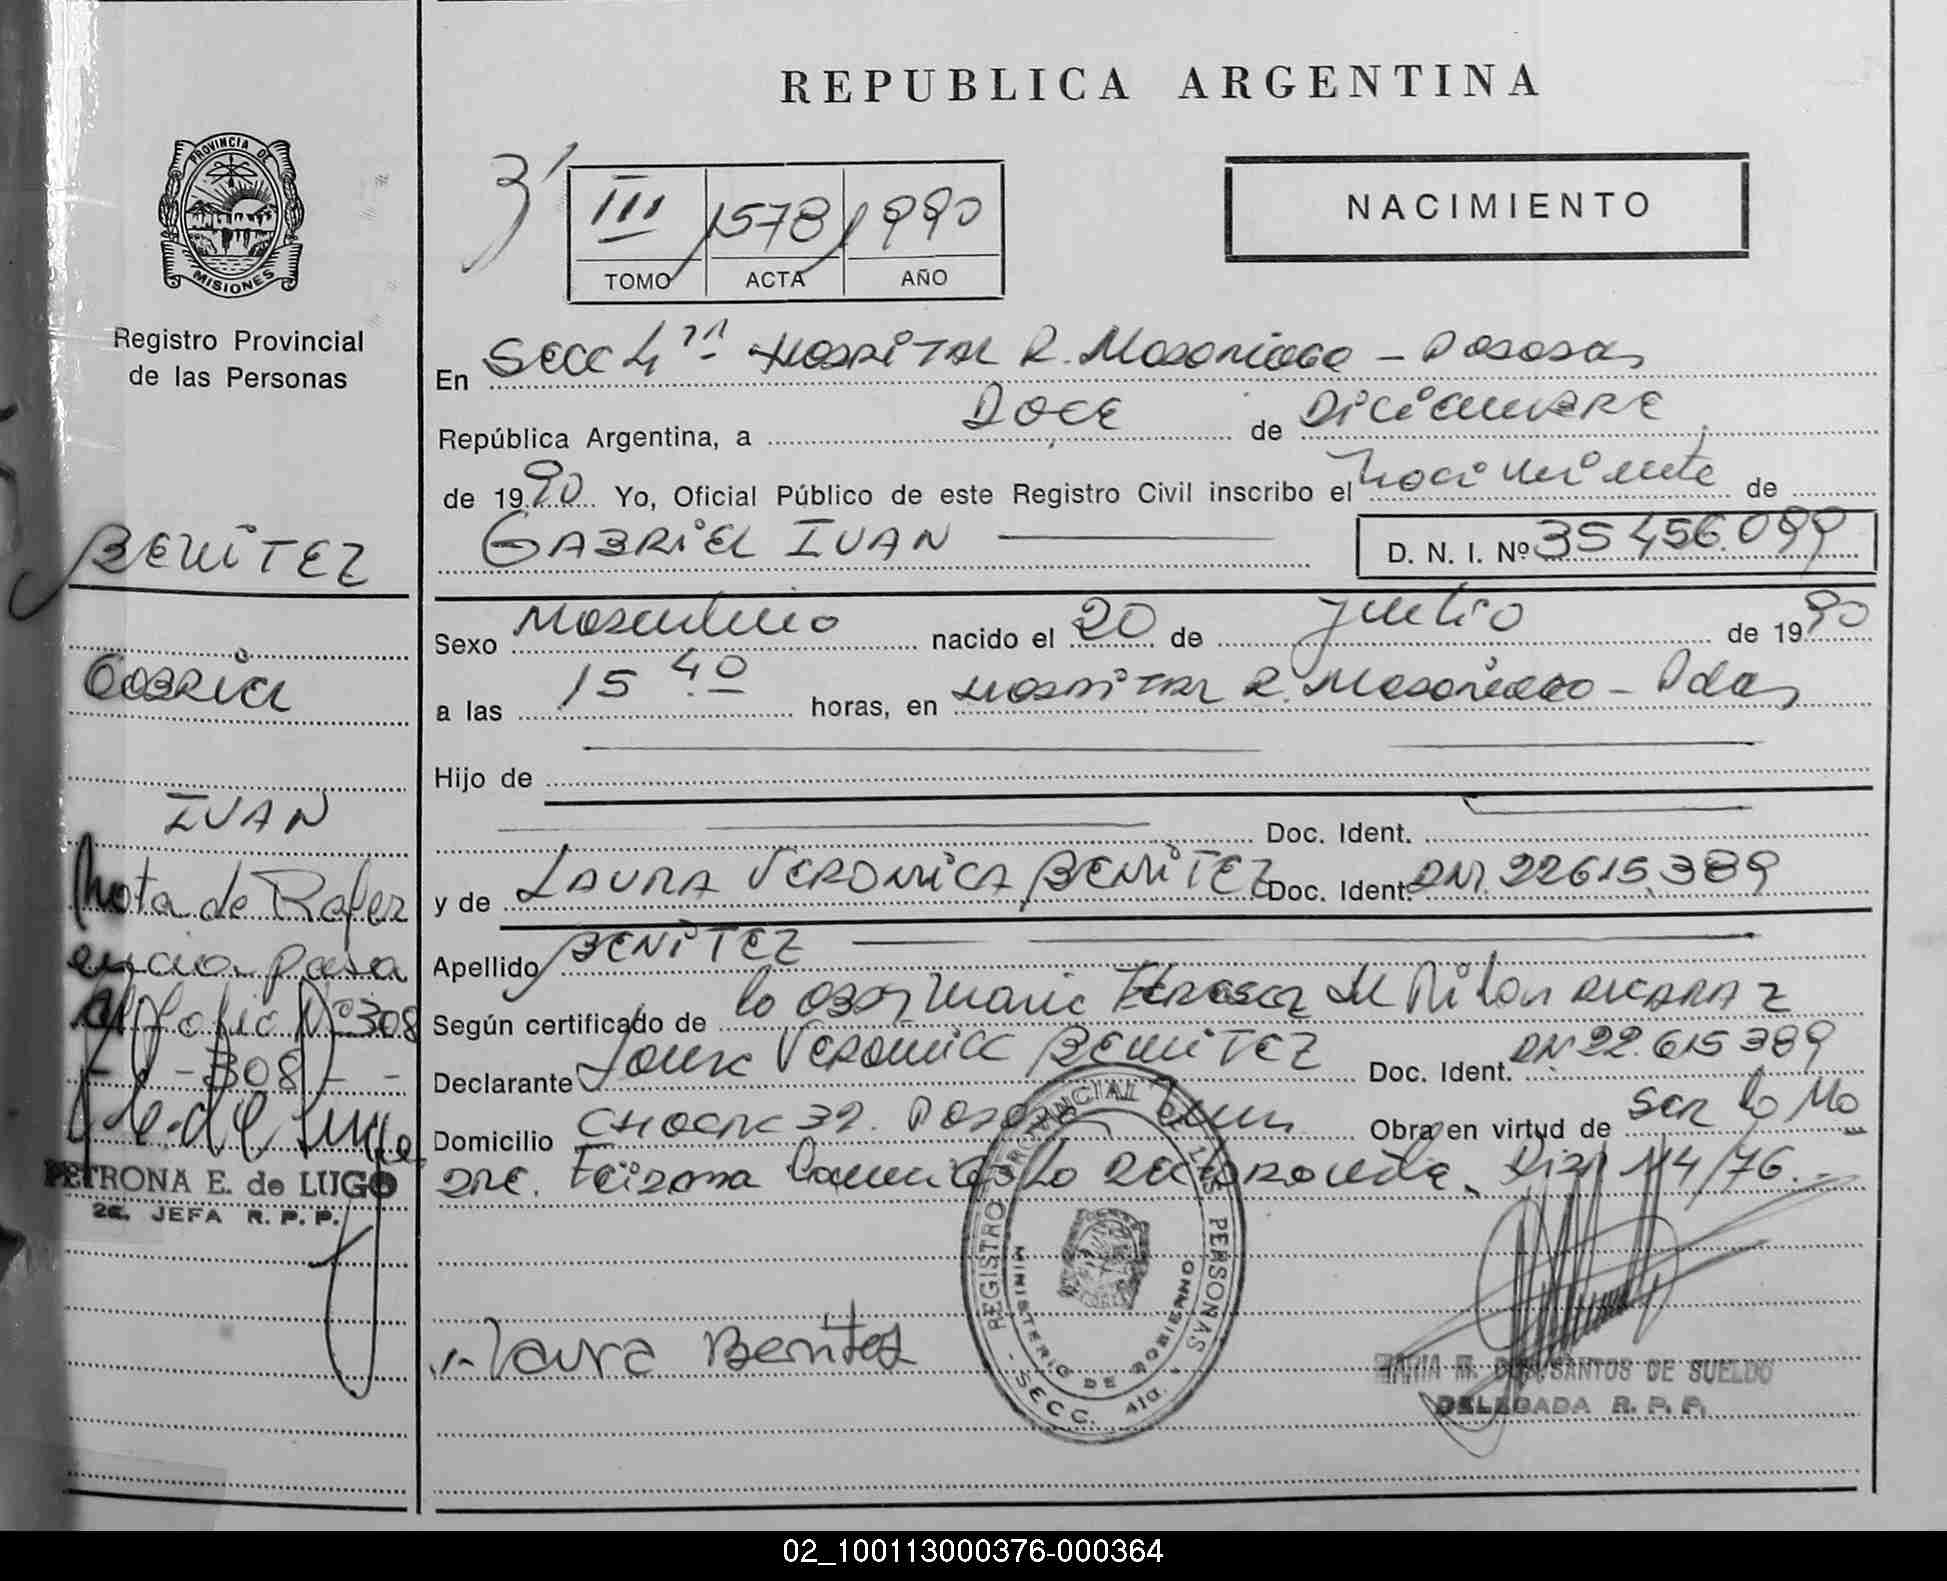 REPUBLICA ARGENTINA
PROVINCIA DE
MISIONES
Registro Provincial
de las Personas
III 1578 1990
TOMO ACTA AÑO
NACIMIENTO
En Secc 4ta Hospital R. Madariaga - Posadas
República Argentina, a DOCE de DICIEMBRE
de 1990 Yo, Oficial Público de este Registro Civil inscribo el nacimiento de
GABRIEL IVAN D. N. I. Nº 35 456.099
Sexo Masculino nacido el 20 de Julio de 1990
a las 15 40 horas, en Hospital R. Madariaga - Pdas
Hijo de
Doc. Ident.
y de LAURA VERONICA BENITEZ Doc. Ident. DNI. 22615.389
Apellido BENITEZ
Según certificado de la Obst Maria Teresa M Alcaraz
Declarante Laura Veronica BENITEZ Doc. Ident. DNI 22.615 389
Domicilio 32. Posadas Obra en virtud de Ser la Ma
dre. Firma la declarante. Disp 114/76.-
Laura Benitez
REGISTRO PROVINCIAL DE LAS PERSONAS
MINISTERIO DE GOBIERNO
- SECC. 4ta. -
MARIA M. DOS SANTOS DE SUELDO
DELEGADA R. P. P.
BENITEZ
GABRIEL
IVAN
Nota de Refer
encia pasa
al folio Nº 308
- - 308 - -
PETRONA E. de LUGO
2a. JEFA R. P. P.
02_100113000376-000364